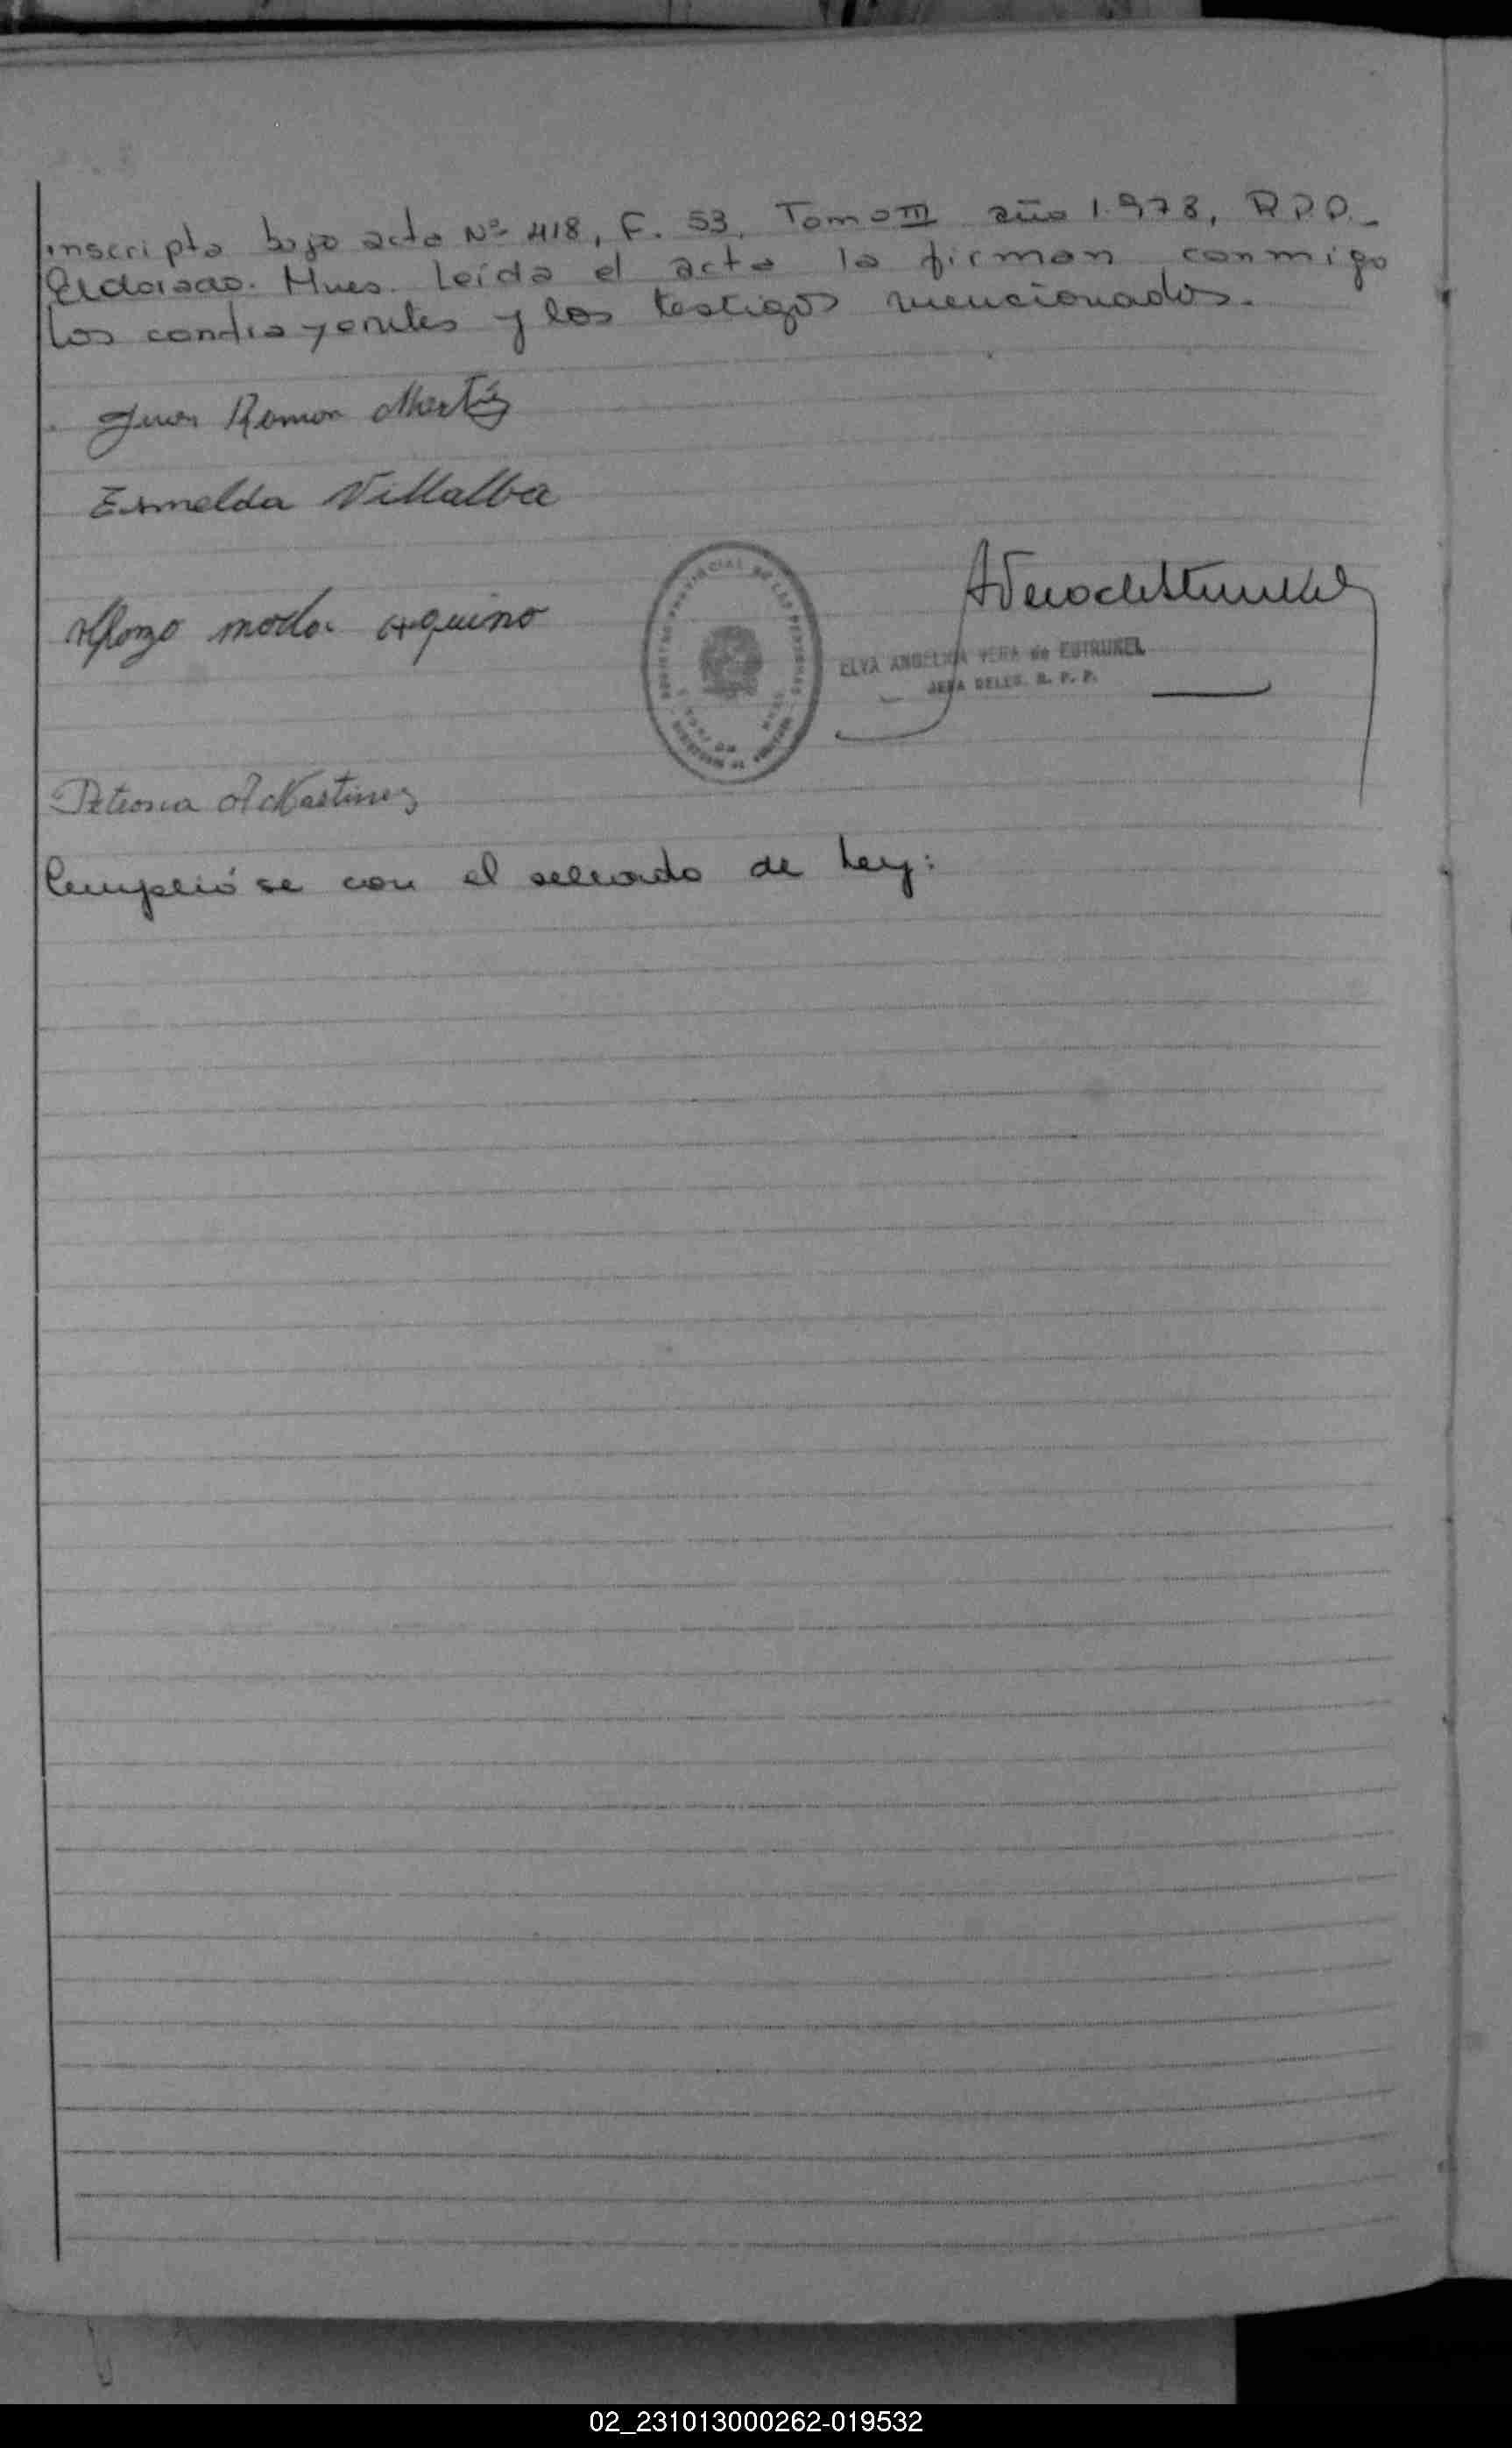 inscripta bajo acta Nº 418, F. 53, Tomo III año 1.978, R.P.P. -
Eldorado. Mnes. Leída el acta la firman conmigo
los contrayentes y los testigos mencionados.
Juan Ramon Martinez
Esmelda Villalba
Alfonzo Aquino
REGISTRO PROVINCIAL DE LAS PERSONAS
ELVA ANGELICA VERA de ESTRUKEL
JEFA DELEG. R. P. P.
Petrona A Martinez
Cumplióse con el sellado de Ley:
02_231013000262-019532